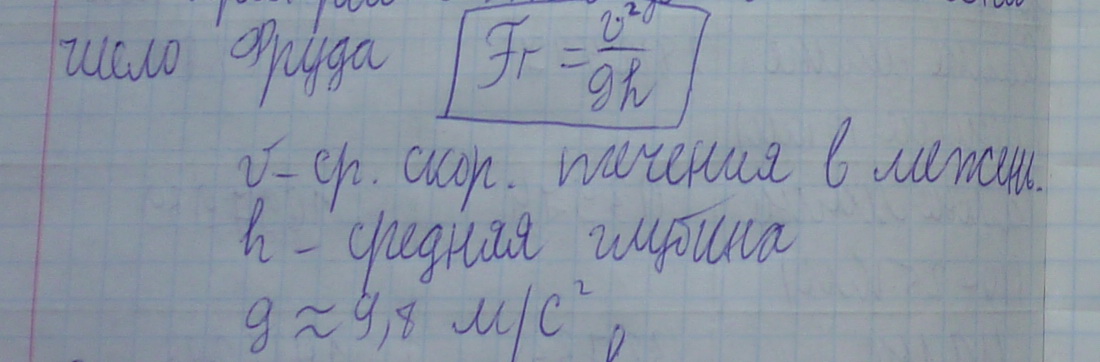 число Фруда Fr = v²/gh
v – ср. скор. течения в межень.
h – средняя глубина
g ≈ 9,8 м/с²